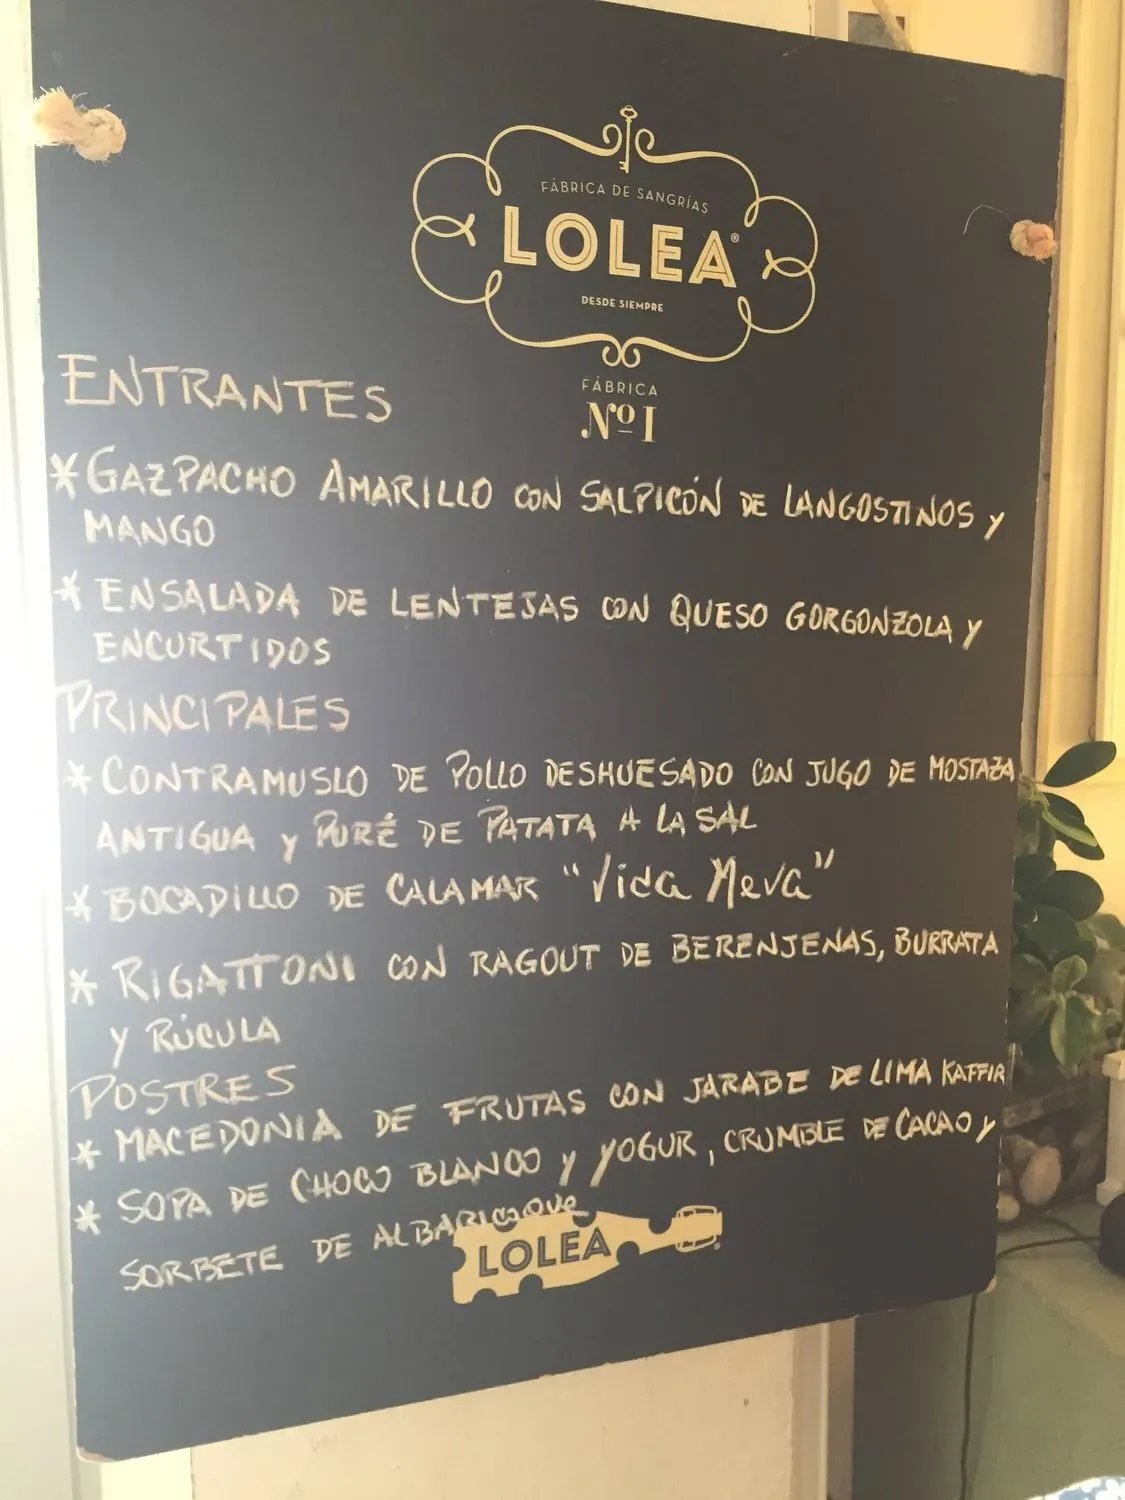 FÁBRICA DE SANGRÍAS
LOLEA®
DESDE SIEMPRE
FÁBRICA
Nº I
ENTRANTES
* GAZPACHO AMARILLO CON SALPICÓN DE LANGOSTINOS Y
MANGO
* ENSALADA DE LENTEJAS CON QUESO GORGONZOLA Y
ENCURTIDOS
PRINCIPALES
* CONTRAMUSLO DE POLLO DESHUESADO CON JUGO DE MOSTAZA
ANTIGUA Y PURÉ DE PATATA A LA SAL
* BOCADILLO DE CALAMAR "Vida Meva"
* RIGATTONI CON RAGOUT DE BERENJENAS, BURRATA
Y RÚCULA
POSTRES
* MACEDONIA DE FRUTAS CON JARABE DE LIMA KAFFIR
* SOPA DE CHOCO BLANCO Y YOGUR, CRUMBLE DE CACAO Y
SORBETE DE ALBARICOQUE
LOLEA®